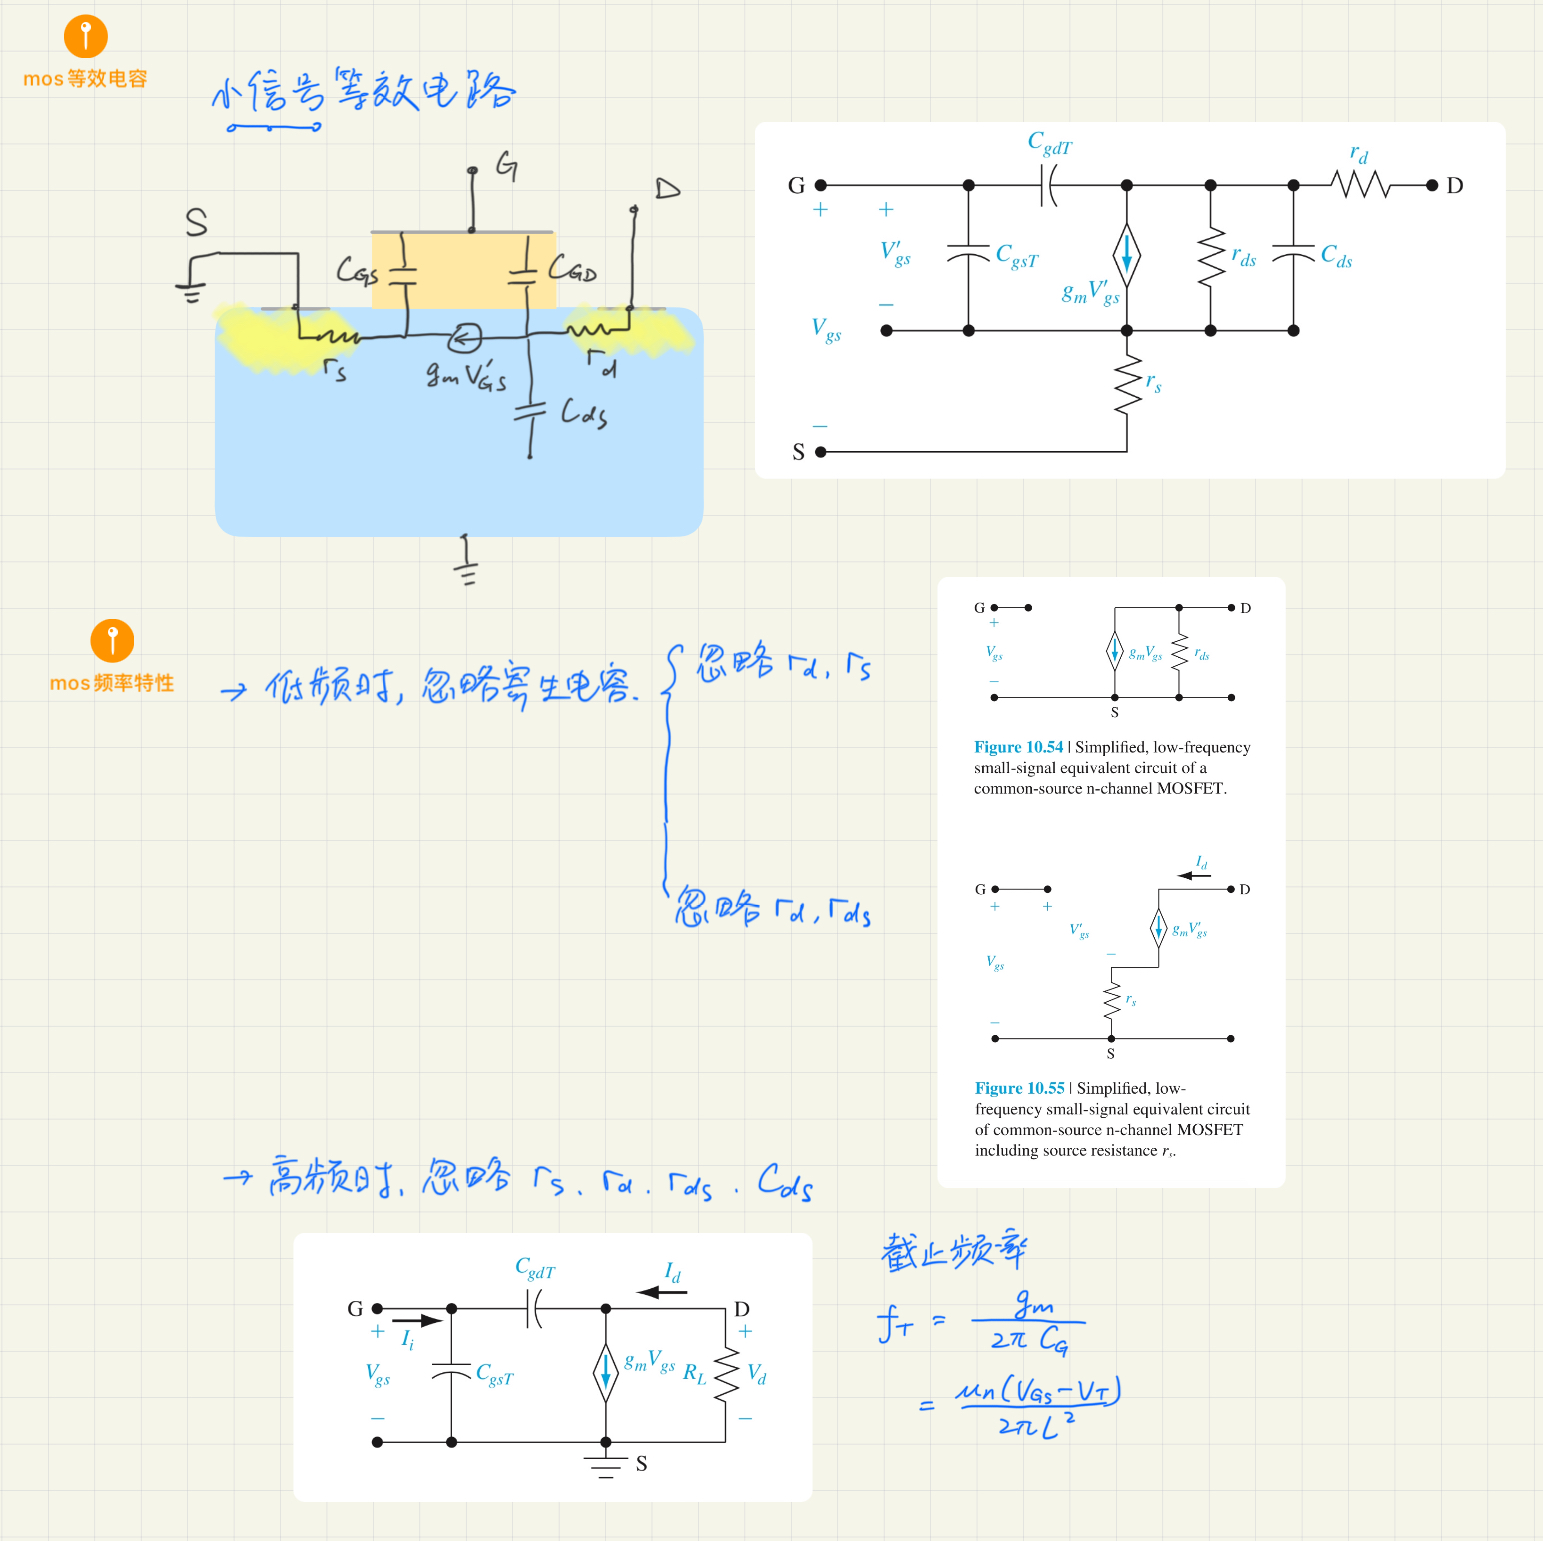 mos 等效电容
小信号等效电路
G
D
S
C_GS
C_GD
r_s
g_m V'_GS
r_d
C_ds
C_gdT
r_d
G
D
+
+
V'_gs
C_gsT
g_mV'_gs
r_ds
C_ds
−
V_gs
r_s
−
S
mos 频率特性
→ 低频时, 忽略寄生电容.
忽略 r_d, r_s
忽略 r_d, r_ds
G
D
+
V_gs
g_mV_gs
r_ds
−
S
Figure 10.54 | Simplified, low-frequency
small-signal equivalent circuit of a
common-source n-channel MOSFET.
I_d
G
D
+
+
V'_gs
g_mV'_gs
−
V_gs
r_s
−
S
Figure 10.55 | Simplified, low-
frequency small-signal equivalent circuit
of common-source n-channel MOSFET
including source resistance r_s.
→ 高频时, 忽略 r_s、r_d、r_ds、C_ds
C_gdT
I_d
G
D
+
I_i
+
V_gs
C_gsT
g_mV_gs
R_L
V_d
−
−
S
截止频率
f_T = g_m / 2π C_G
= μn(V_GS−V_T) / 2πL²